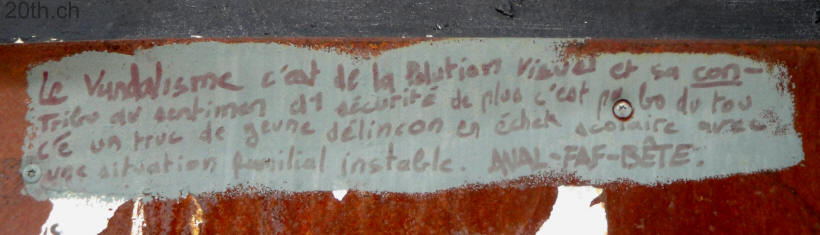 20th.ch
Le Vandalisme c'est de la Polution Visuel et sa con-
Tribu au sentimen d1sécurité de plus c'est pa bo du tou
c'é un truc de geune délincon en échek scolaire avec
une situation familial instable. ANAL-FAF-BÊTE.